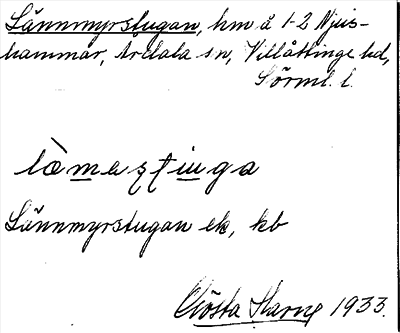 Lännmyrstugan, hm å 1-2 Njus-
hammar, Ardala sn, Villåttinge hd,
Sörml. l.
Lännmyrstugan ek, kb
Gösta 1933.